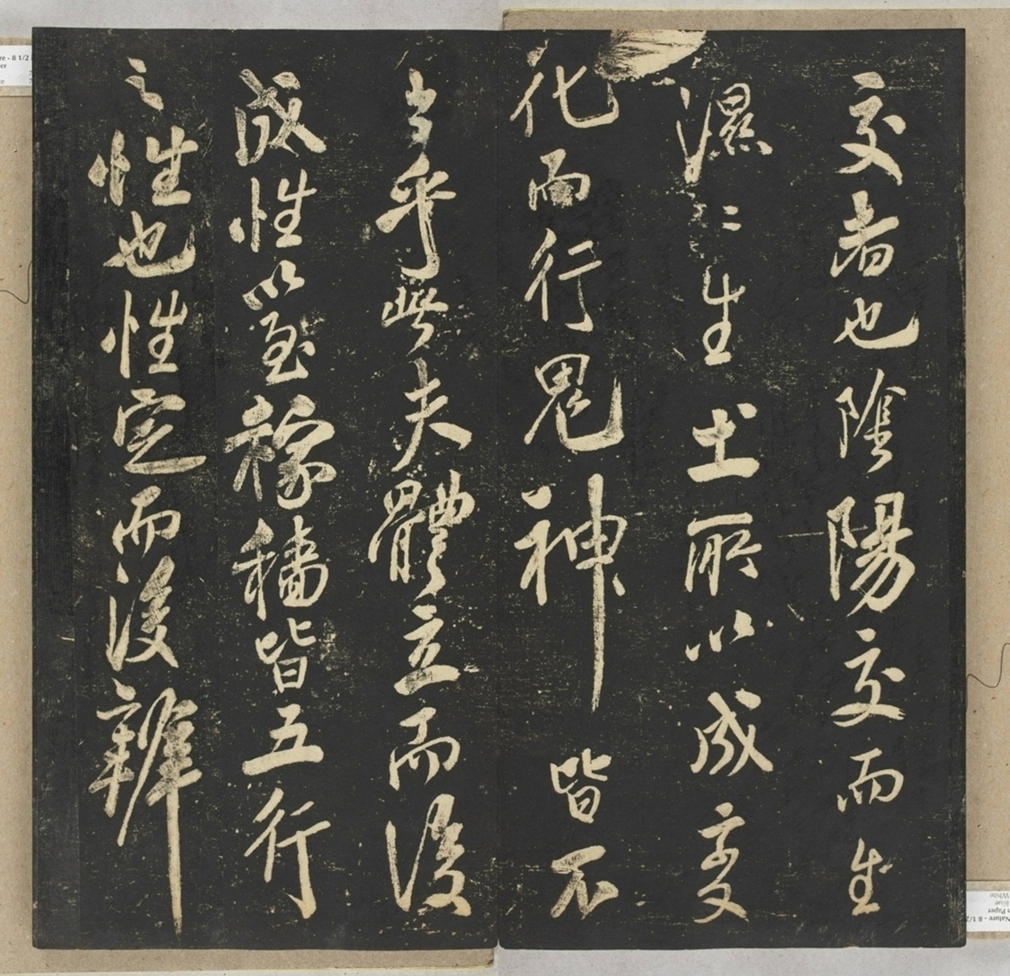 交者也陰陽交而生
濕〻生土所以成變
化而行鬼神皆不
乎此夫體立而後
成性以至稼穡皆五行
之性也性定而後辨